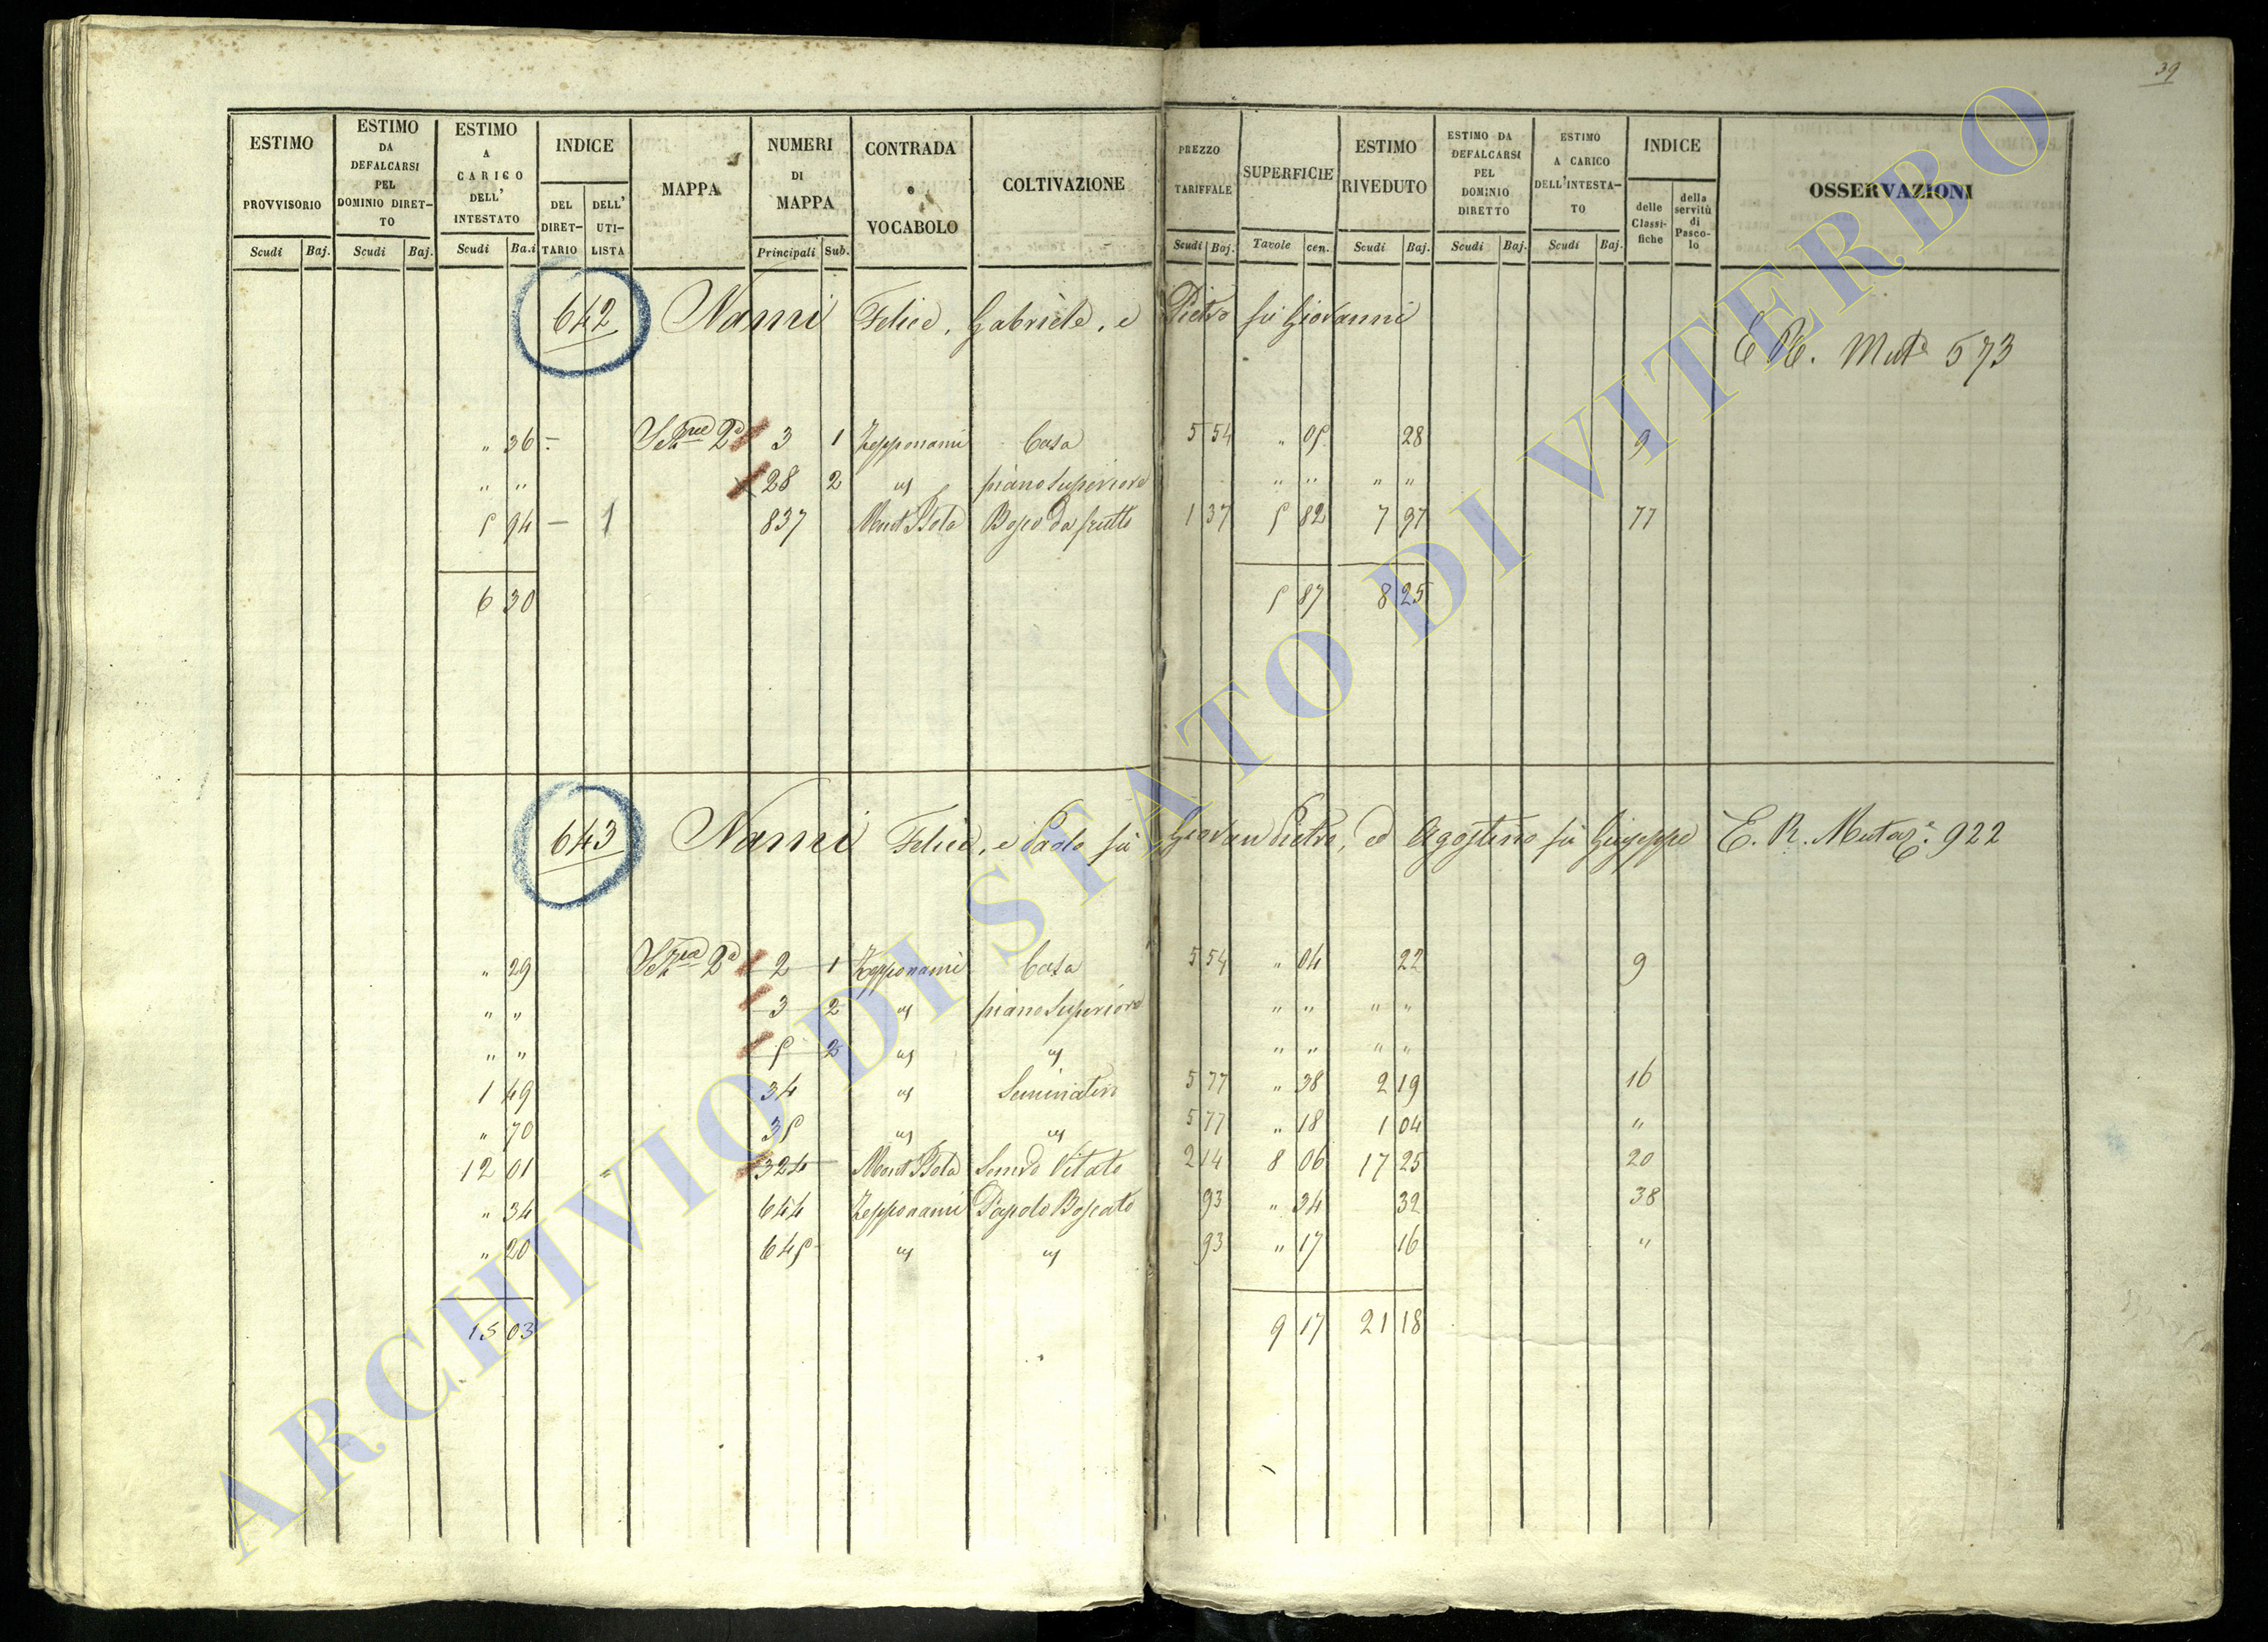 39
ESTIMO PROVVISORIO
ESTIMO DA DEFALCARSI PEL DOMINIO DIRETTO
ESTIMO A CARICO DELL' INTESTATO
INDICE
DEL DIRETTARIO
DELL' UTILISTA
MAPPA
NUMERI DI MAPPA
CONTRADA o VOCABOLO
COLTIVAZIONE
PREZZO TARIFFALE
SUPERFICIE
ESTIMO RIVEDUTO
ESTIMO DA DEFALCARSI PEL DOMINIO DIRETTO
ESTIMO A CARICO DELL'INTESTATO
INDICE
delle Classifiche
della servitù di Pascolo
OSSERVAZIONI
Scudi Baj. Scudi Baj. Scudi Ba.i Principali Sub. Scudi Baj. Tavole cen. Scudi Baj. Scudi Baj. Scudi Baj.
642 Nami Felice, Gabriele, e Pietro fù Giovanni
E R. Mut.e 573
" 36 3 1 Zepponami Casa 5 54 " 05 28 9
" " 28 2 " piano Superiore " " " "
5 94 1 837 Bosco da frutto 1 37 5 82 7 97 77
6 30 5 87 8 25
643 Nami Felice, e Paolo fù Giovan Pietro, ed Agostino fù Giuseppe E. R. Mutaz.e 922
" 29 2 1 Zepponami Casa 5 54 " 04 22 9
" " 3 2 " piano Superiore " " " "
" " 5 2 " " " " " "
1 49 34 " Seminativo 5 77 " 38 2 19 16
" 70 35 " " 5 77 " 18 1 04 "
12 01 " 324 Vitato 2 14 8 06 17 25 20
" 34 644 Zepponami Pascolo Boscato 93 " 34 32 38
" 20 645 " " 93 " 17 16 "
15 03 9 17 21 18
ARCHIVIO DI STATO DI VITERBO